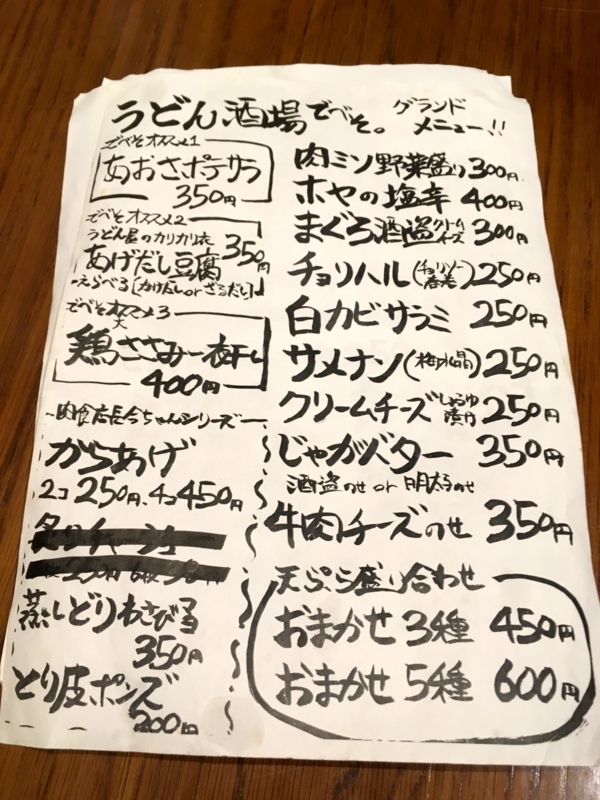 うどん酒場でべそ。
グランド
メニュー!!
でべそオススメ1
あおさポテサラ
350円
でべそオススメ2
うどん屋のカリカリ衣
あげだし豆腐 350円
えらべる[かけだし or ざるだし]
でべそオススメ3
鶏ささみ一夜干し
400円
~肉食店長今ちゃんシリーズ~
からあげ
2コ 250円、4コ 450円
蒸しどりわさび
350円
とり皮ポンズ
200円
肉ミソ野菜盛り 300円
ホヤの塩辛 400円
まぐろ酒盗クリームチーズ 300円
チョリハル(チョリソー春巻) 250円
白カビサラミ 250円
サメナン(梅水晶) 250円
クリームチーズしょうゆ漬け 250円
じゃがバター 350円
酒盗のせ or 明太のせ
牛肉チーズのせ 350円
天ぷら盛り合わせ
おまかせ 3種 450円
おまかせ 5種 600円